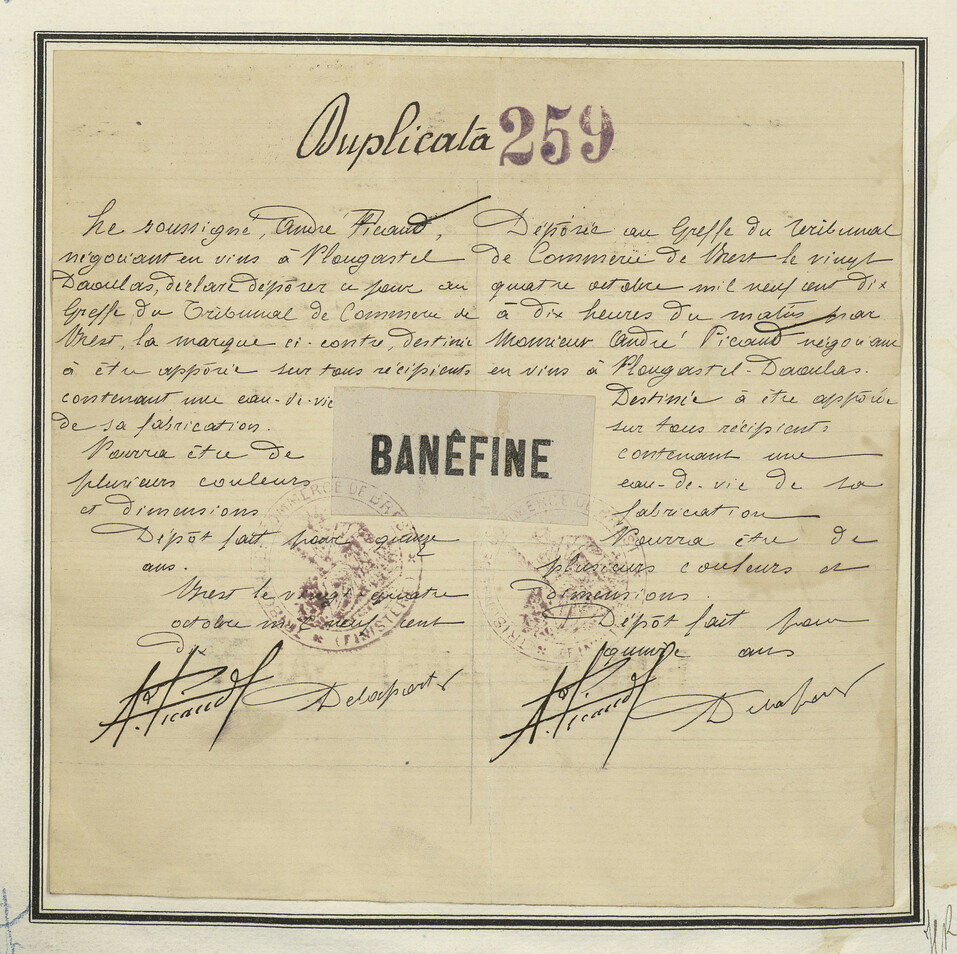 Duplicata 259
Le soussigné, André Picaud,
négociant en vins à Plougastel
Daoulas, déclare déposer ce jour au
Greffe du Tribunal de Commerce de
Brest, la marque ci-contre, destinée
à être apposée sur tous récipients
contenant une eau-de-vie
de sa fabrication.
Pourra être de
plusieurs couleurs
et dimensions
Dépôt fait pour quinze
ans.
Brest le vingt quatre
octobre mil neuf cent
dix
A. Picaud Delaporte
BANÊFINE
Déposée au Greffe du Tribunal
de Commerce de Brest le vingt
quatre octobre mil neuf cent dix
à dix heures du matin par
Monsieur André Picaud négociant
en vins à Plougastel-Daoulas.
Destinée à être apposée
sur tous récipients
contenant une
eau-de-vie de sa
fabrication
Pourra être de
plusieurs couleurs et
dimensions.
Dépôt fait pour
quinze ans
A. Picaud Delaporte
COMMERCE DE BREST
(FINISTERE)